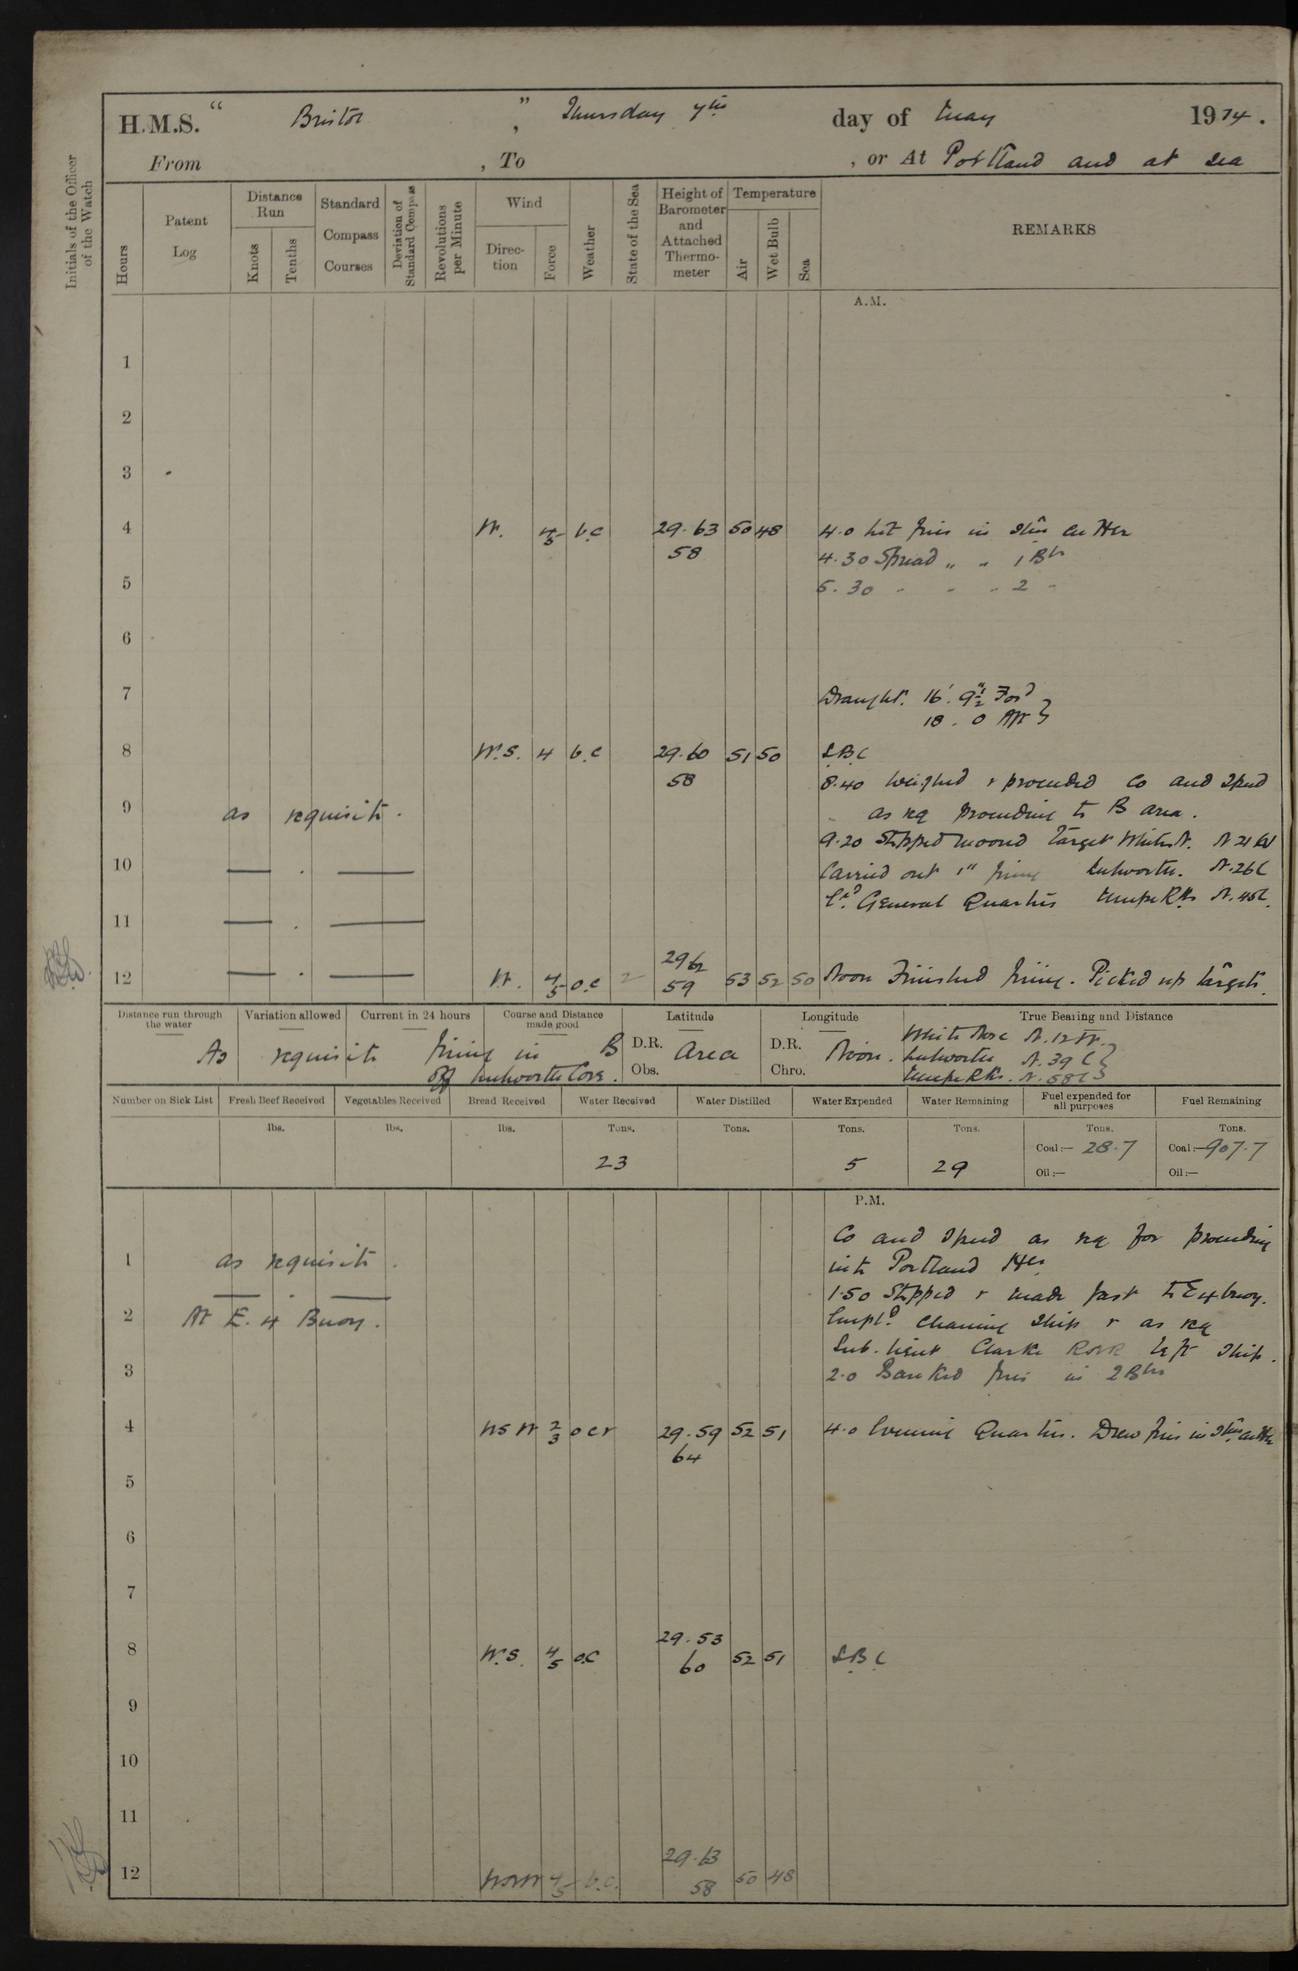 H.M.S. " Bristol ", Thursday 7th day of May 1914.
From , To , or At Portland and at sea
Initials of the Officer of the Watch
Hours
Patent Log
Distance Run
Knots
Tenths
Standard Compass Courses
Deviation of Standard Compass
Revolutions per Minute
Wind
Direction
Force
Weather
State of the Sea
Height of Barometer and Attached Thermometer
Temperature
Air
Wet Bulb
Sea
REMARKS
A.M.
1
2
3
4 W. 4-5 b.c 29.63 50 48 4.0 Lit fires in Stm Cutter
58 4.30 Spread " " 1 Blr
5 5.30 " " " 2 "
6
7 Draught. 16' 9½" For'd
18 . 0 Aft }
8 W.S. 4 b.c 29.60 51 50 S.B.C
58 8.40 Weighed & proceeded Co and Speed
9 as requisite. as req proceeding to B area.
9.20 Stopped Moored Target White N. N 21 W
10 — . — Carried out 1" firing Lulworth. N.26E
Cd General Quarters Mupe Rks N.45E.
11 — . —
29.62
12 — . — W. 4-5 o.c 2 59 53 52 50 Noon Finished firing. Picked up targets.
Distance run through the water
Variation allowed
Current in 24 hours
Course and Distance made good
Latitude
Longitude
True Bearing and Distance
As requisite firing in B D.R. Area D.R. Noon. White Nose N.12W.
off Lulworth Cove. Obs. Chro. Lulworth N.39E
Mupe Rks. N.58E }
Number on Sick List
Fresh Beef Received
Vegetables Received
Bread Received
Water Received
Water Distilled
Water Expended
Water Remaining
Fuel expended for all purposes
Fuel Remaining
lbs. lbs. lbs. Tons. Tons. Tons. Tons. Tons. Tons.
23 5 29 Coal:— 28.7 Coal:— 907.7
Oil:— Oil:—
P.M.
Co and Speed as req for proceeding
1 as requisite. into Portland Hbr
— . — 1.50 Stopped & made fast to E4 buoy.
2 At E. 4 Buoy. Empld cleaning Ship & as req
Sub. Lieut Clarke RNR left Ship.
3 2.0 Banked fires in 2 Blrs
4 WSW 2-3 o c r 29.59 52 51 4.0 Evening Quarters. Drew fires in Stm Cutter
64
5
6
7
29.53
8 W.S. 4-5 o.c 60 52 51 S.B.C
9
10
11
29.63
12 WNW 4-5 b.c. 58 50 48